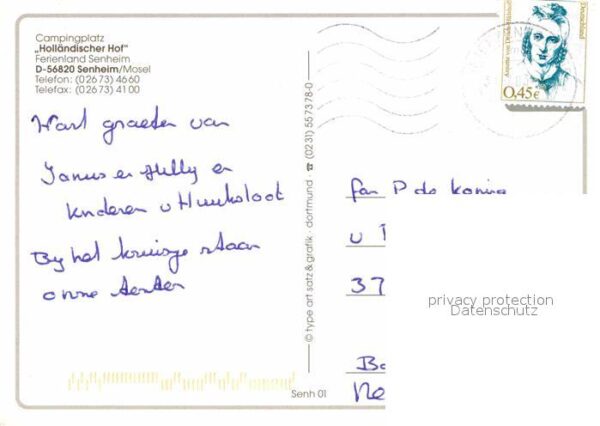 Campingplatz
„Holländischer Hof"
Ferienland Senheim
D-56820 Senheim/Mosel
Telefon: (02673) 4660
Telefax: (02673) 4100
Hart groeten van
Janus en Helly en
Kinderen v
By het kruisje staan
onze tenten
© type art satz & grafik · dortmund ☎ (0231) 557378-0
Senh 01
Deutschland
Annette von
0,45€
fam P de Koning
37
privacy protection
Datenschutz